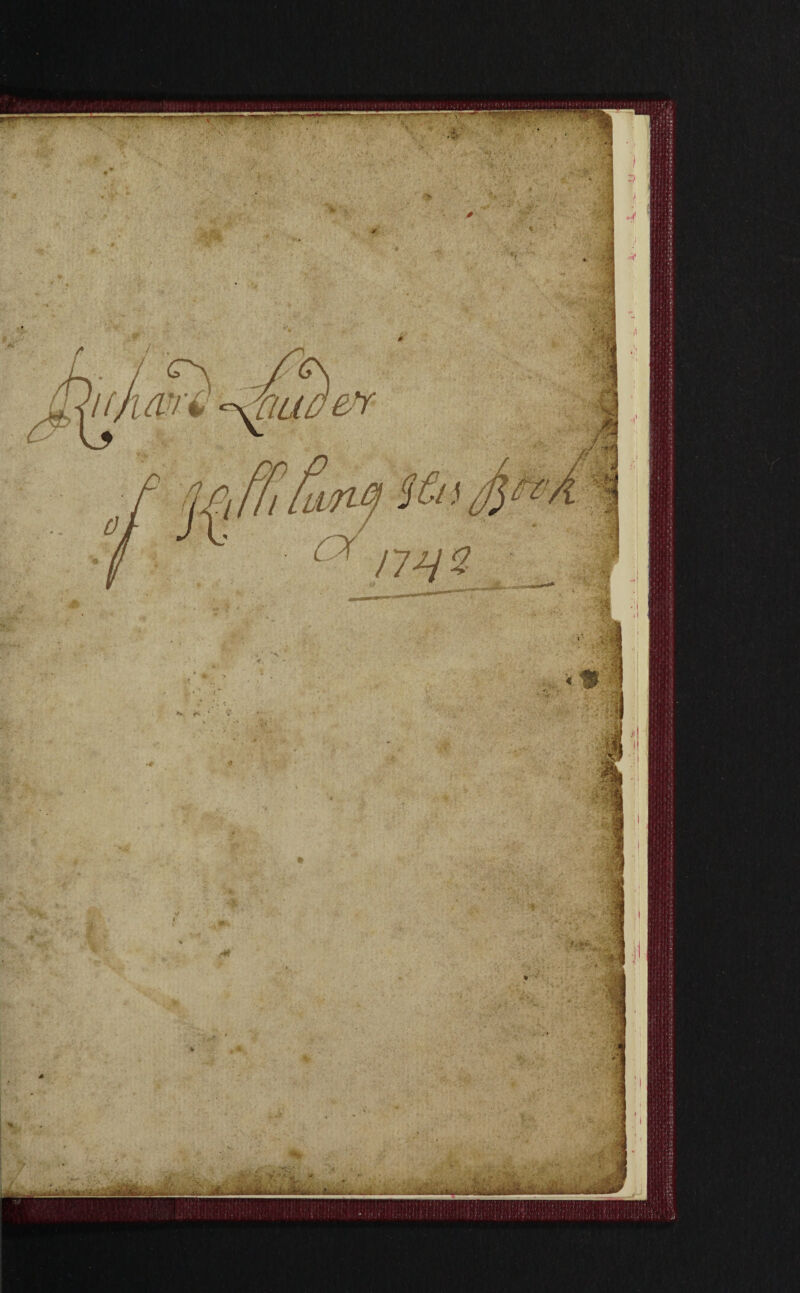 Richard Lauder
of Killilung His Book
1742